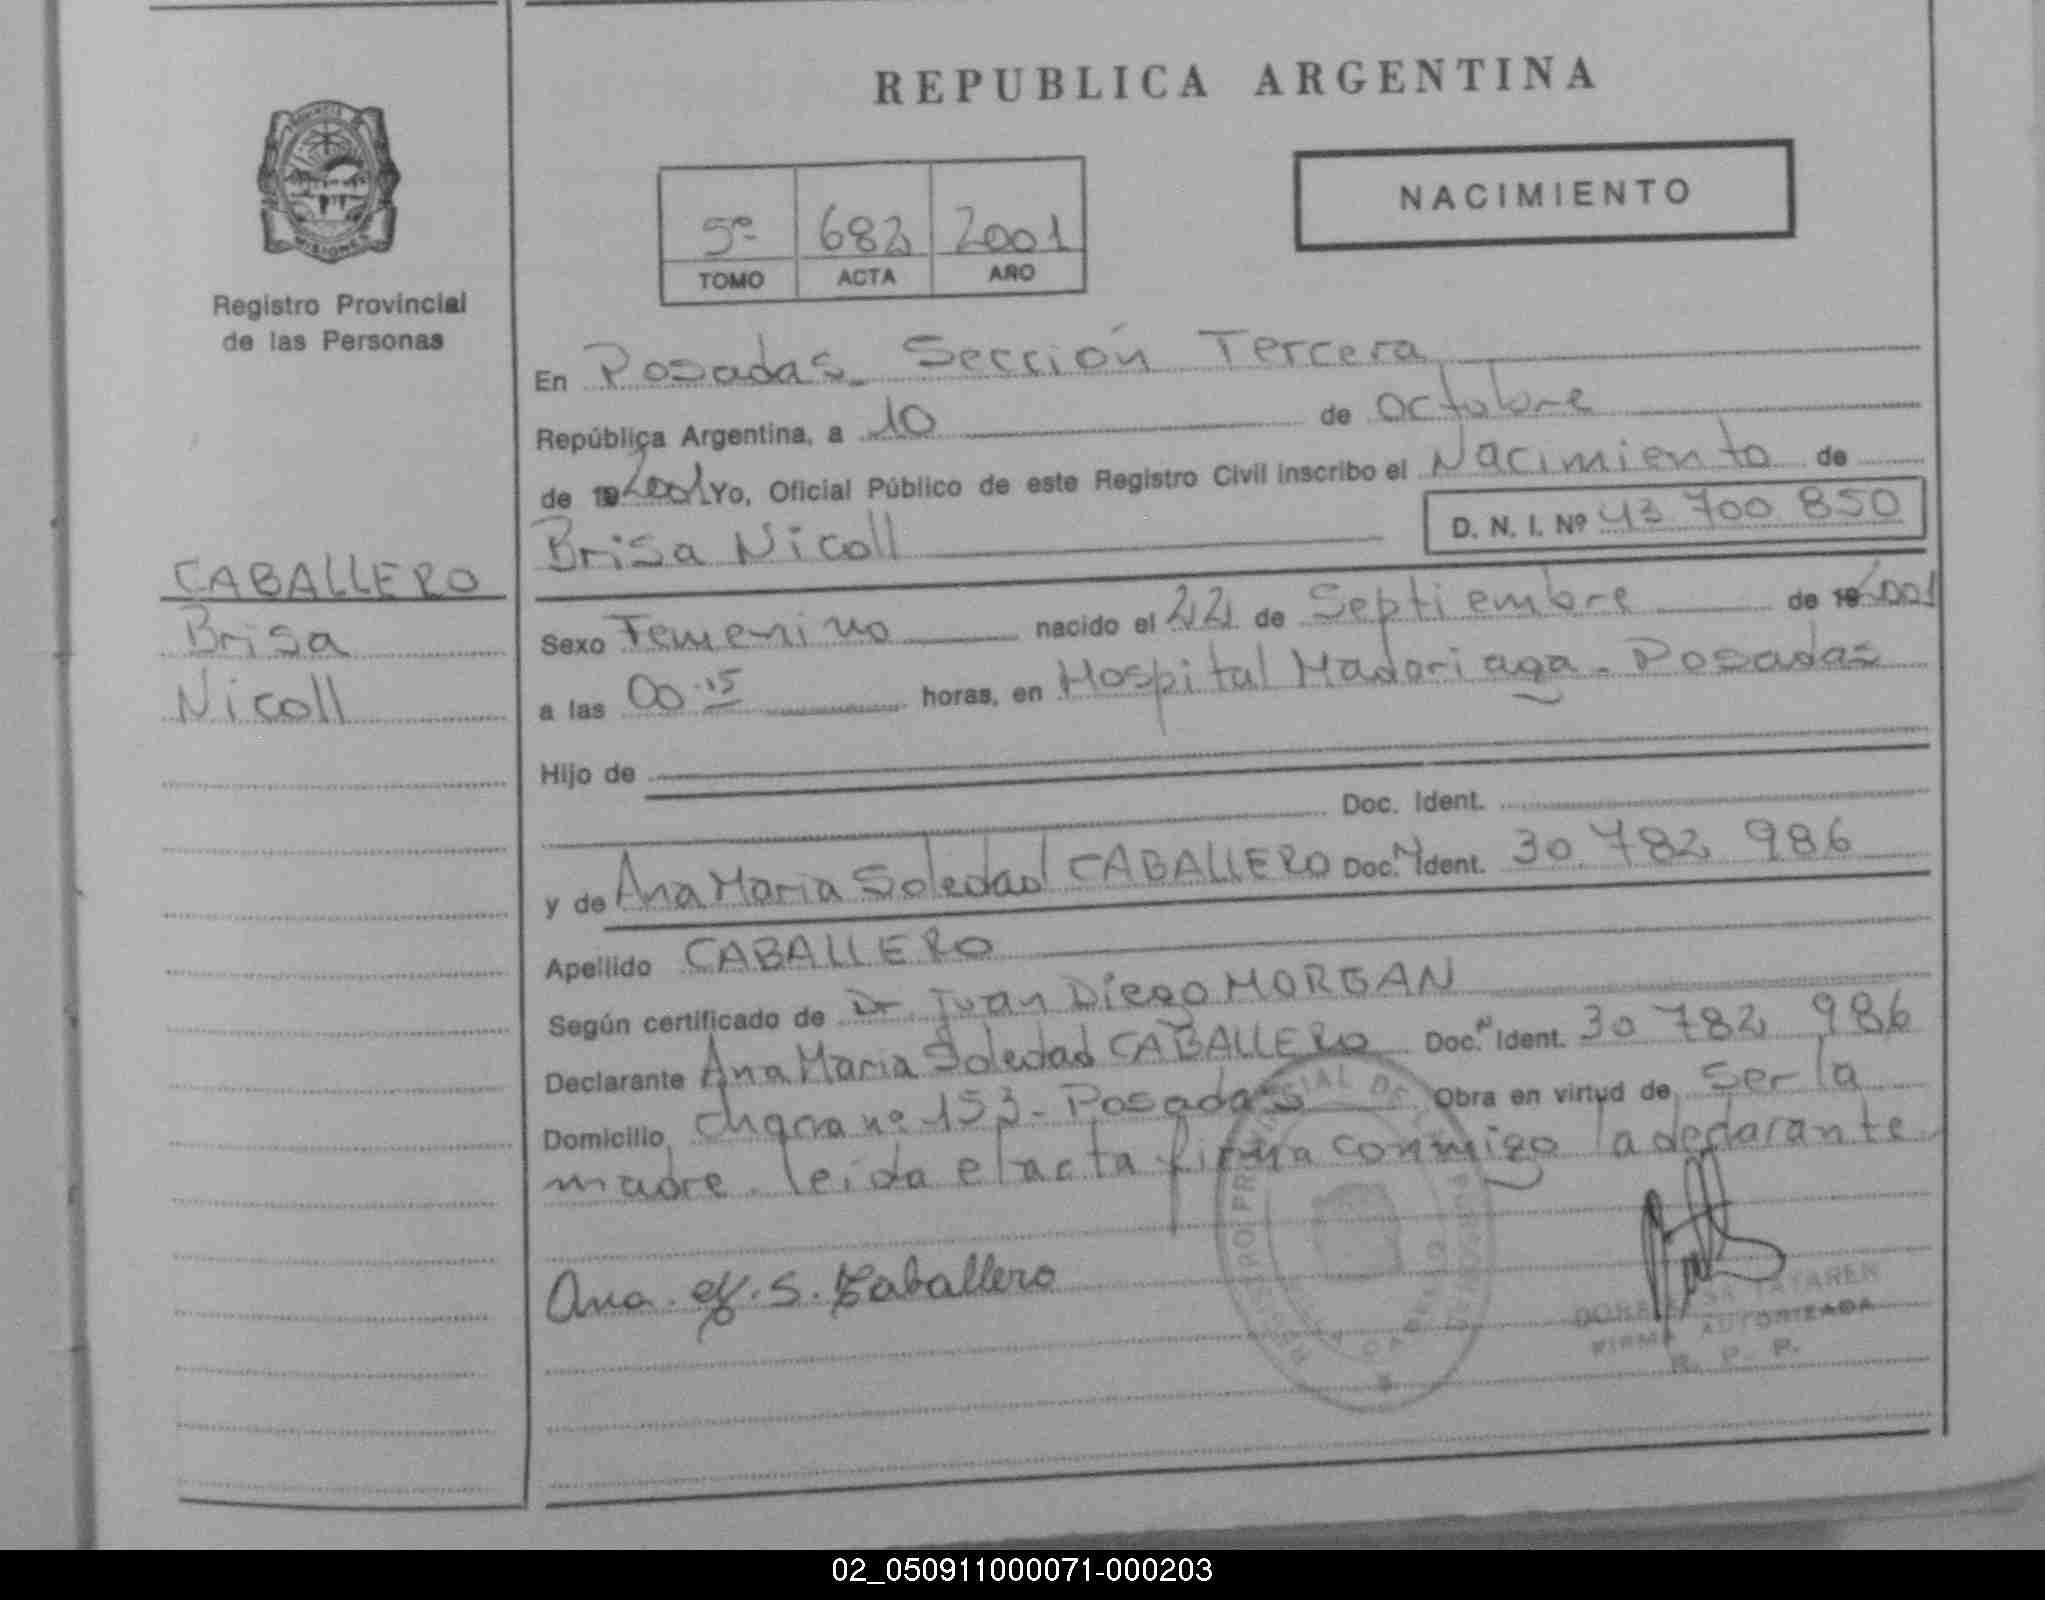 REPUBLICA ARGENTINA
NACIMIENTO
5º 682 2001
TOMO ACTA AÑO
MISIONES
Registro Provincial
de las Personas
CABALLERO
Brisa
Nicoll
En Posadas - Sección Tercera
República Argentina, a 10 de octubre
de 2001 Yo, Oficial Público de este Registro Civil inscribo el Nacimiento de
D. N. I. Nº 43 700 850
Brisa Nicoll
Sexo Femenino nacido el 22 de Septiembre de 2001
a las 00:15 horas, en Hospital Madariaga - Posadas
Hijo de
Doc. Ident.
y de Ana Maria Soledad CABALLERO Doc. Ident. 30.782 986
Apellido CABALLERO
Según certificado de Dr. Juan Diego MORGAN
Declarante Ana Maria Soledad CABALLERO Doc. Ident. 30 782 986
Domicilio chacra nº 153 - Posadas Obra en virtud de ser la
madre. leida el acta firma conmigo la declarante
Ana. M. S. Caballero
TATAREN
FIRMA AUTORIZADA
R. P. P.
02_050911000071-000203